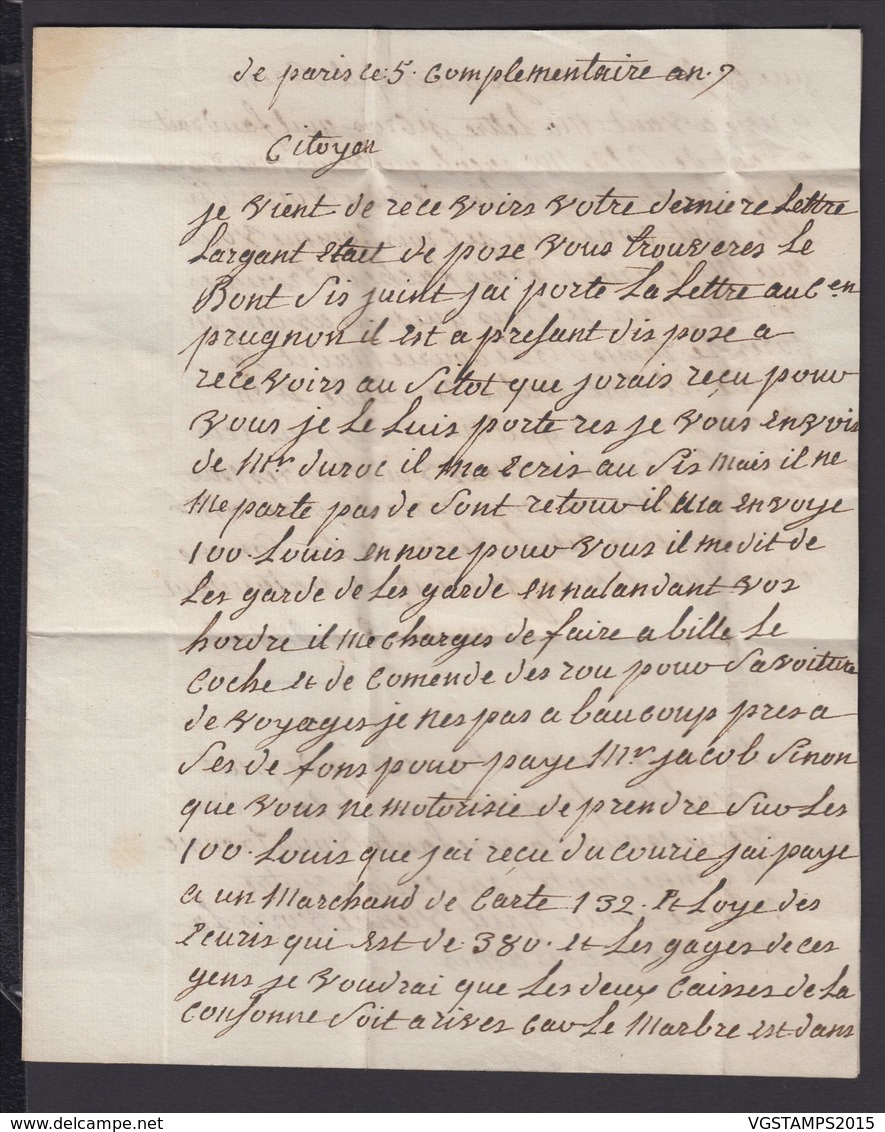 de paris le 5. Complementaire an. 7
Citoyen
je vient de rece voirs votre derniere Lettre
Largant etait de pose vous trouveres Le
Bont Sis juint jai porte La Lettre au Cen
prugnon il est a presant dis pose a
rece voirs au Sitot que jorais reçu pouo
vous je Le Luis porte res je vous envois
de Mr duroc il ma ecris au Sis mais il ne
Me parte pas de Sont retouo il Ma envoye
100. Louis en nore pouo vous il me dit de
Les garde de Les garde en natandant vos
hordre il Me Charges de faire a bille Le
Coche et de Comende des rou pouo Sa voiture
de voyages je nes pas a baucoup pres a
Ses de fons pouo paye Mr jacob Sinon
que vous ne motorisie de prendre Suo Les
100. Louis que jai reçu du Courie jai paye
a un Marchand de Carte 132. et Loye des
Ecuris qui est de 380. et Les gages de ces
gens je voudrai que Les deux Caisses de La
Consonne Soit arives Cao Le Marbre est dans
VGSTAMPS2015